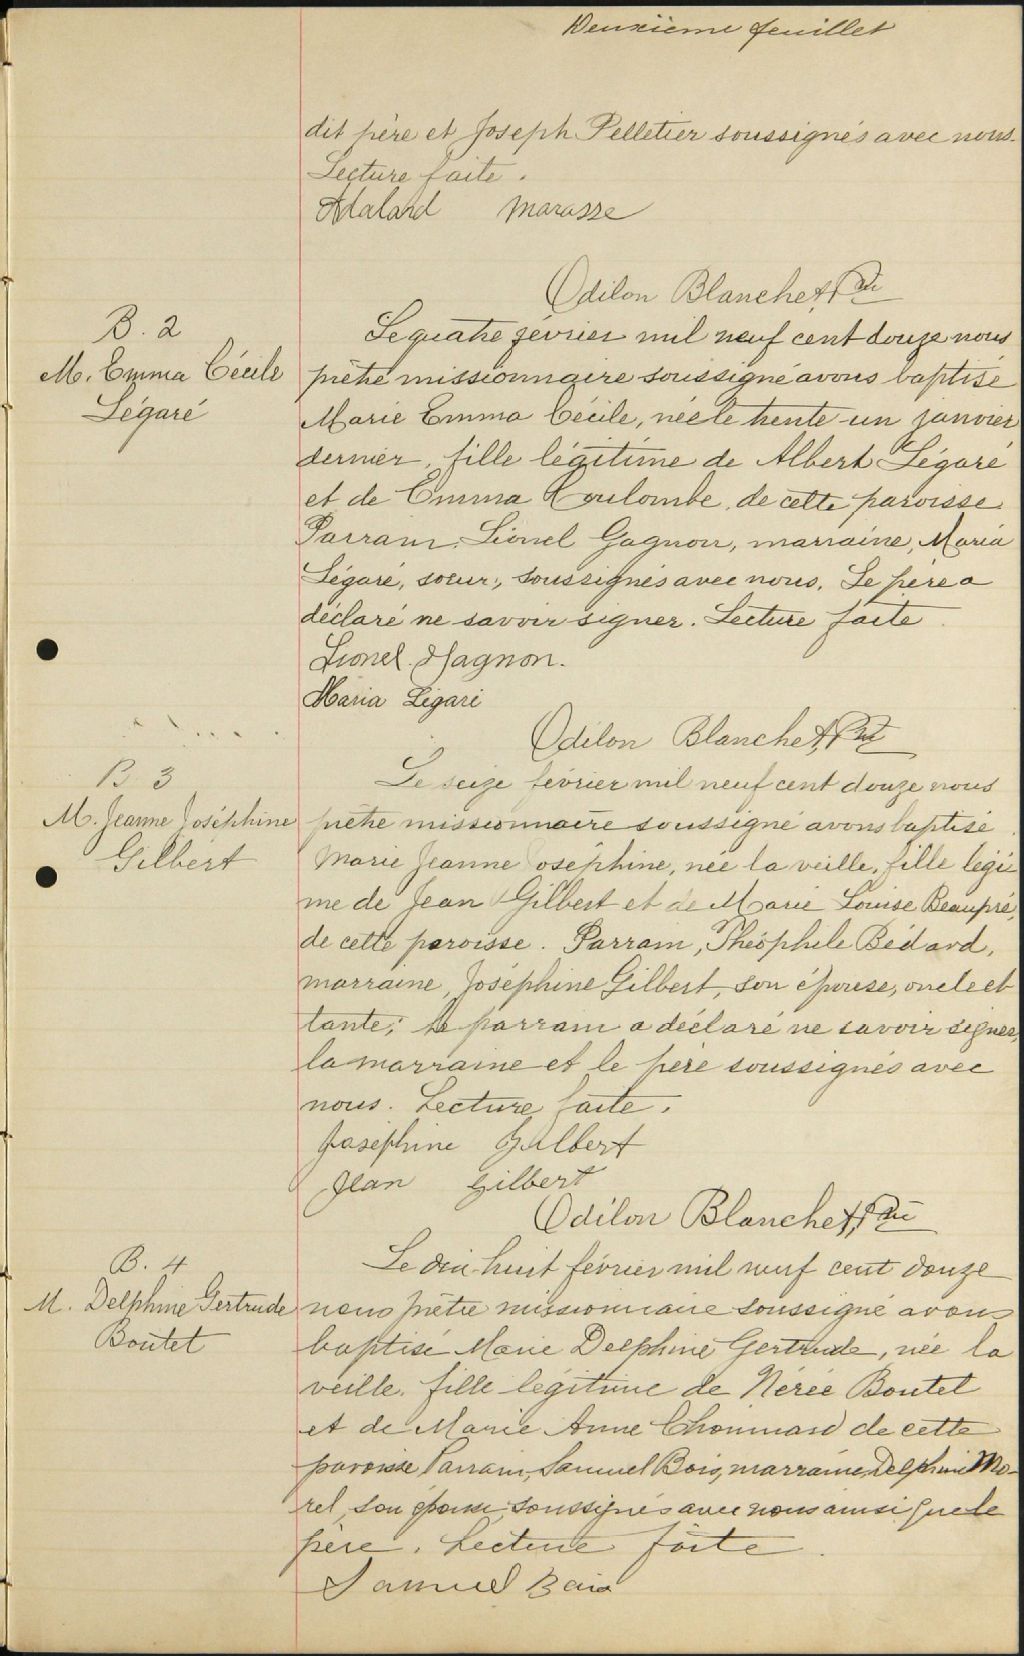 Deuxième feuillet
dit père et Joseph Pelletier soussignés avec nous.
Lecture faite.
Adalard Marasse
Odilon Blanchet, Ptre
B. 2
M. Emma Cécile
Légaré
Le quatre février mil neuf cent douze nous
prêtre missionnaire soussigné avons baptisé
Marie Emma Cécile, née le trente-un janvier
dernier, fille légitime de Albert Légaré
et de Emma Coulombe de cette paroisse.
Parrain, Lionel Gagnon, marraine, Maria
Légaré, soeur, soussignés avec nous. Le père a
déclaré ne savoir signer. Lecture faite.
Lionel Gagnon.
Maria Légaré
Odilon Blanchet, Ptre
B 3
M. Jeanne Joséphine
Gilbert
Le seize février mil neuf cent douze nous
prêtre missionnaire soussigné avons baptisé
Marie Jeanne Joséphine, née la veille, fille légi
me de Jean Gilbert et de Marie Louise Beaupré,
de cette paroisse. Parrain, Théophile Bédard,
marraine, Joséphine Gilbert, son épouse, oncle et
tante; le parrain a déclaré ne savoir signer,
la marraine et le père soussignés avec
nous. Lecture faite.
Joséphine Gilbert
Jean Gilbert
Odilon Blanchet, Ptre
B. 4
M. Delphine Gertrude
Boutet
Le dix-huit février mil neuf cent douze
nous prêtre missionnaire soussigné avons
baptisé Marie Delphine Gertrude, née la
veille, fille légitime de Nérée Boutet
et de Marie Anne Chouinard de cette
paroisse Parrain, Samuel Bois, marraine, Delphine Mo-
rel, son épouse, soussignés avec nous ainsi que le
père. Lecture faite.
Samuel Bois